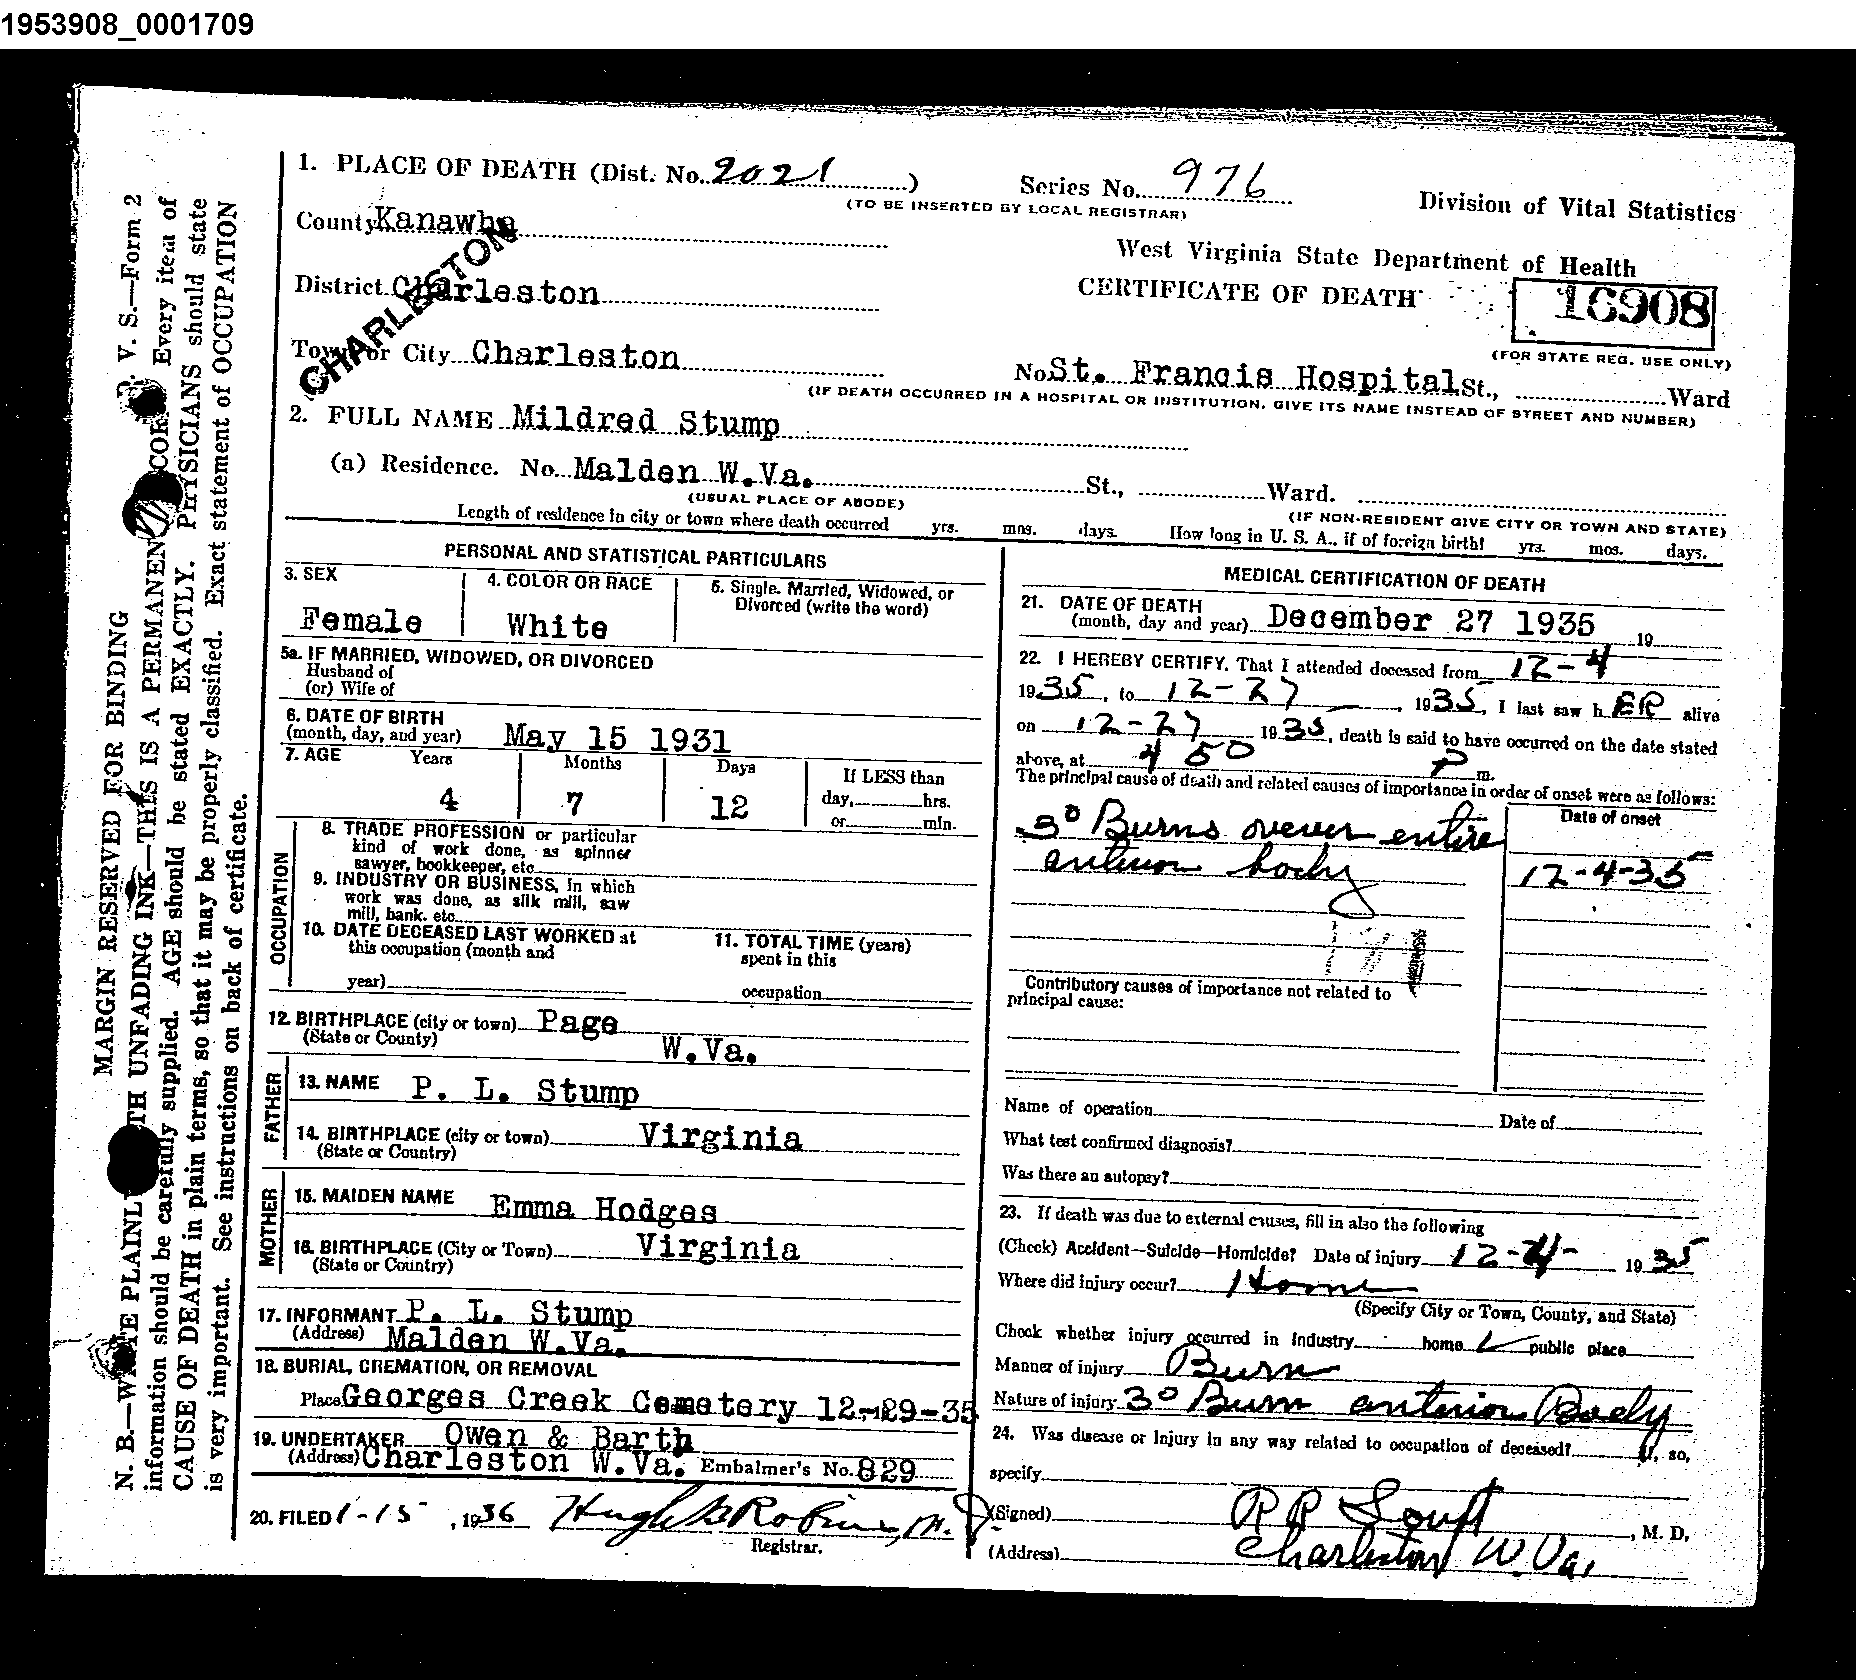 1953908_0001709
1. PLACE OF DEATH (Dist. No. 2021 ) Series No. 976
(TO BE INSERTED BY LOCAL REGISTRAR)
Division of Vital Statistics
County Kanawha
West Virginia State Department of Health
CERTIFICATE OF DEATH
16908
(FOR STATE REG. USE ONLY)
District Charleston
CHARLESTON
Town or City Charleston No. St. Francis Hospital St., Ward
(IF DEATH OCCURRED IN A HOSPITAL OR INSTITUTION, GIVE ITS NAME INSTEAD OF STREET AND NUMBER)
2. FULL NAME Mildred Stump
(a) Residence. No. Malden W.Va. St., Ward.
(USUAL PLACE OF ABODE) (IF NON-RESIDENT GIVE CITY OR TOWN AND STATE)
Length of residence in city or town where death occurred yrs. mos. days. How long in U. S. A., if of foreign birth? yrs. mos. days.
PERSONAL AND STATISTICAL PARTICULARS
3. SEX 4. COLOR OR RACE 5. Single, Married, Widowed, or
Divorced (write the word)
Female White
5a. IF MARRIED, WIDOWED, OR DIVORCED
Husband of
(or) Wife of
6. DATE OF BIRTH
(month, day, and year) May 15 1931
7. AGE Years Months Days If LESS than
4 7 12 day, hrs.
or min.
OCCUPATION
8. TRADE PROFESSION or particular
kind of work done, as spinner
sawyer, bookkeeper, etc
9. INDUSTRY OR BUSINESS, in which
work was done, as silk mill, saw
mill, bank, etc
10. DATE DECEASED LAST WORKED at
this occupation (month and
year)
11. TOTAL TIME (years)
spent in this
occupation
12. BIRTHPLACE (city or town) Page
(State or County) W.Va.
FATHER
13. NAME P. L. Stump
14. BIRTHPLACE (city or town) Virginia
(State or Country)
MOTHER
15. MAIDEN NAME Emma Hodges
16. BIRTHPLACE (City or Town) Virginia
(State or Country)
17. INFORMANT P. L. Stump
(Address) Malden W.Va.
18. BURIAL, CREMATION, OR REMOVAL
Place Georges Creek Cemetery 12-29-35
19. UNDERTAKER Owen & Barth
(Address) Charleston W.Va. Embalmer's No. 829
20. FILED 1-15 , 1936 Hugh B Robins, M.D.
Registrar.
MEDICAL CERTIFICATION OF DEATH
21. DATE OF DEATH
(month, day and year) December 27 1935 19
22. I HEREBY CERTIFY, That I attended deceased from 12-4
1935, to 12-27, 1935, I last saw hER alive
on 12-27 1935, death is said to have occurred on the date stated
above, at 4 50 P m.
The principal cause of death and related causes of importance in order of onset were as follows:
Date of onset
3° Burns over entire
anterior body 12-4-35
Contributory causes of importance not related to
principal cause:
Name of operation Date of
What test confirmed diagnosis?
Was there an autopsy?
23. If death was due to external causes, fill in also the following
(Check) Accident—Suicide—Homicide? Date of injury 12-4- 1935
Where did injury occur? Home
(Specify City or Town, County, and State)
Check whether injury occurred in industry home ✓ public place
Manner of injury Burn
Nature of injury 3° Burn anterior Body
24. Was disease or injury in any way related to occupation of deceased? If, so,
specify
(Signed) , M. D.
(Address) Charleston W.Va.
MARGIN RESERVED FOR BINDING
V. S.—Form 2
N. B.—WRITE PLAINLY WITH UNFADING INK—THIS IS A PERMANENT RECORD Every item of
information should be carefully supplied. AGE should be stated EXACTLY. PHYSICIANS should state
CAUSE OF DEATH in plain terms, so that it may be properly classified. Exact statement of OCCUPATION
is very important. See instructions on back of certificate.